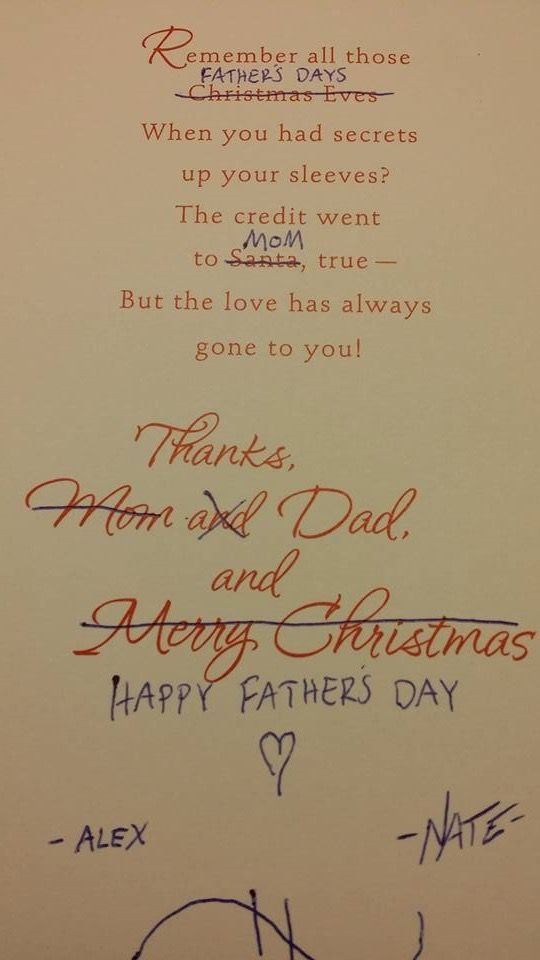 Remember all those
FATHER'S DAYS
Christmas Eves
When you had secrets
up your sleeves?
The credit went
MOM
to Santa, true —
But the love has always
gone to you!
Thanks,
Mom and Dad,
and
Merry Christmas
HAPPY FATHER'S DAY
- ALEX
- NATE -